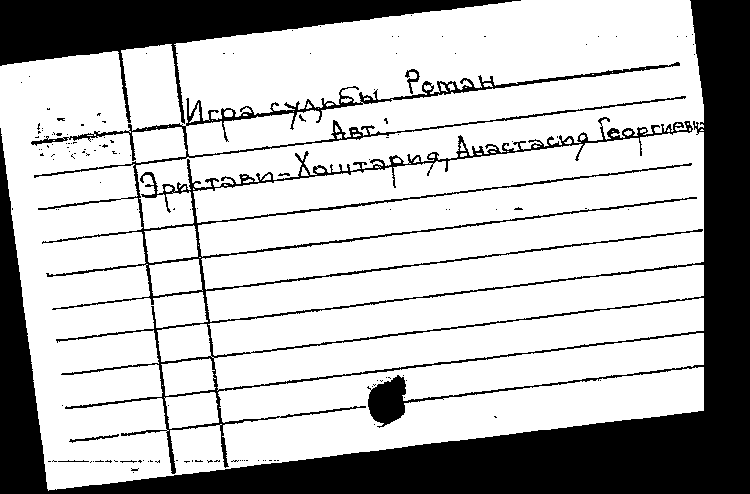 Игра судьбы Роман
Авт.:
Эристави-Хоштария, Анастасия Георгиевна